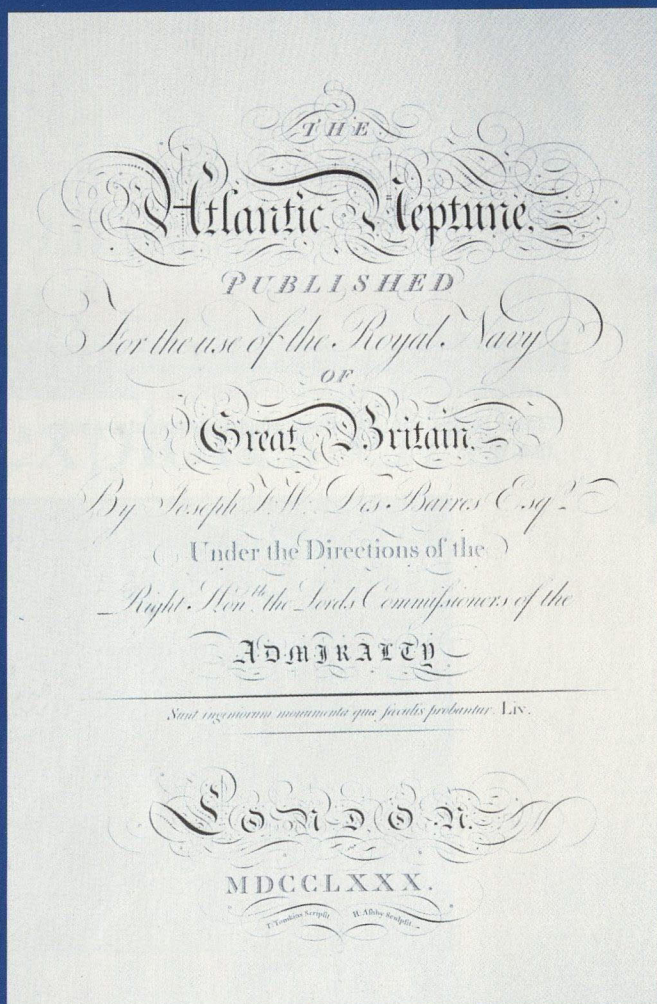 THE
Atlantic Neptune.
PUBLISHED
For the use of the Royal Navy
OF
Great Britain.
By Joseph F. W. Des Barres Esqr.
Under the Directions of the
Right Honble. the Lords Commiſsioners of the
ADMIRALTY.
Sunt ingeniorum monumenta qua ſæculis probantur. Liv.
LONDON.
MDCCLXXX.
T. Tomkins Scripſit H. Aſhby Sculpſit